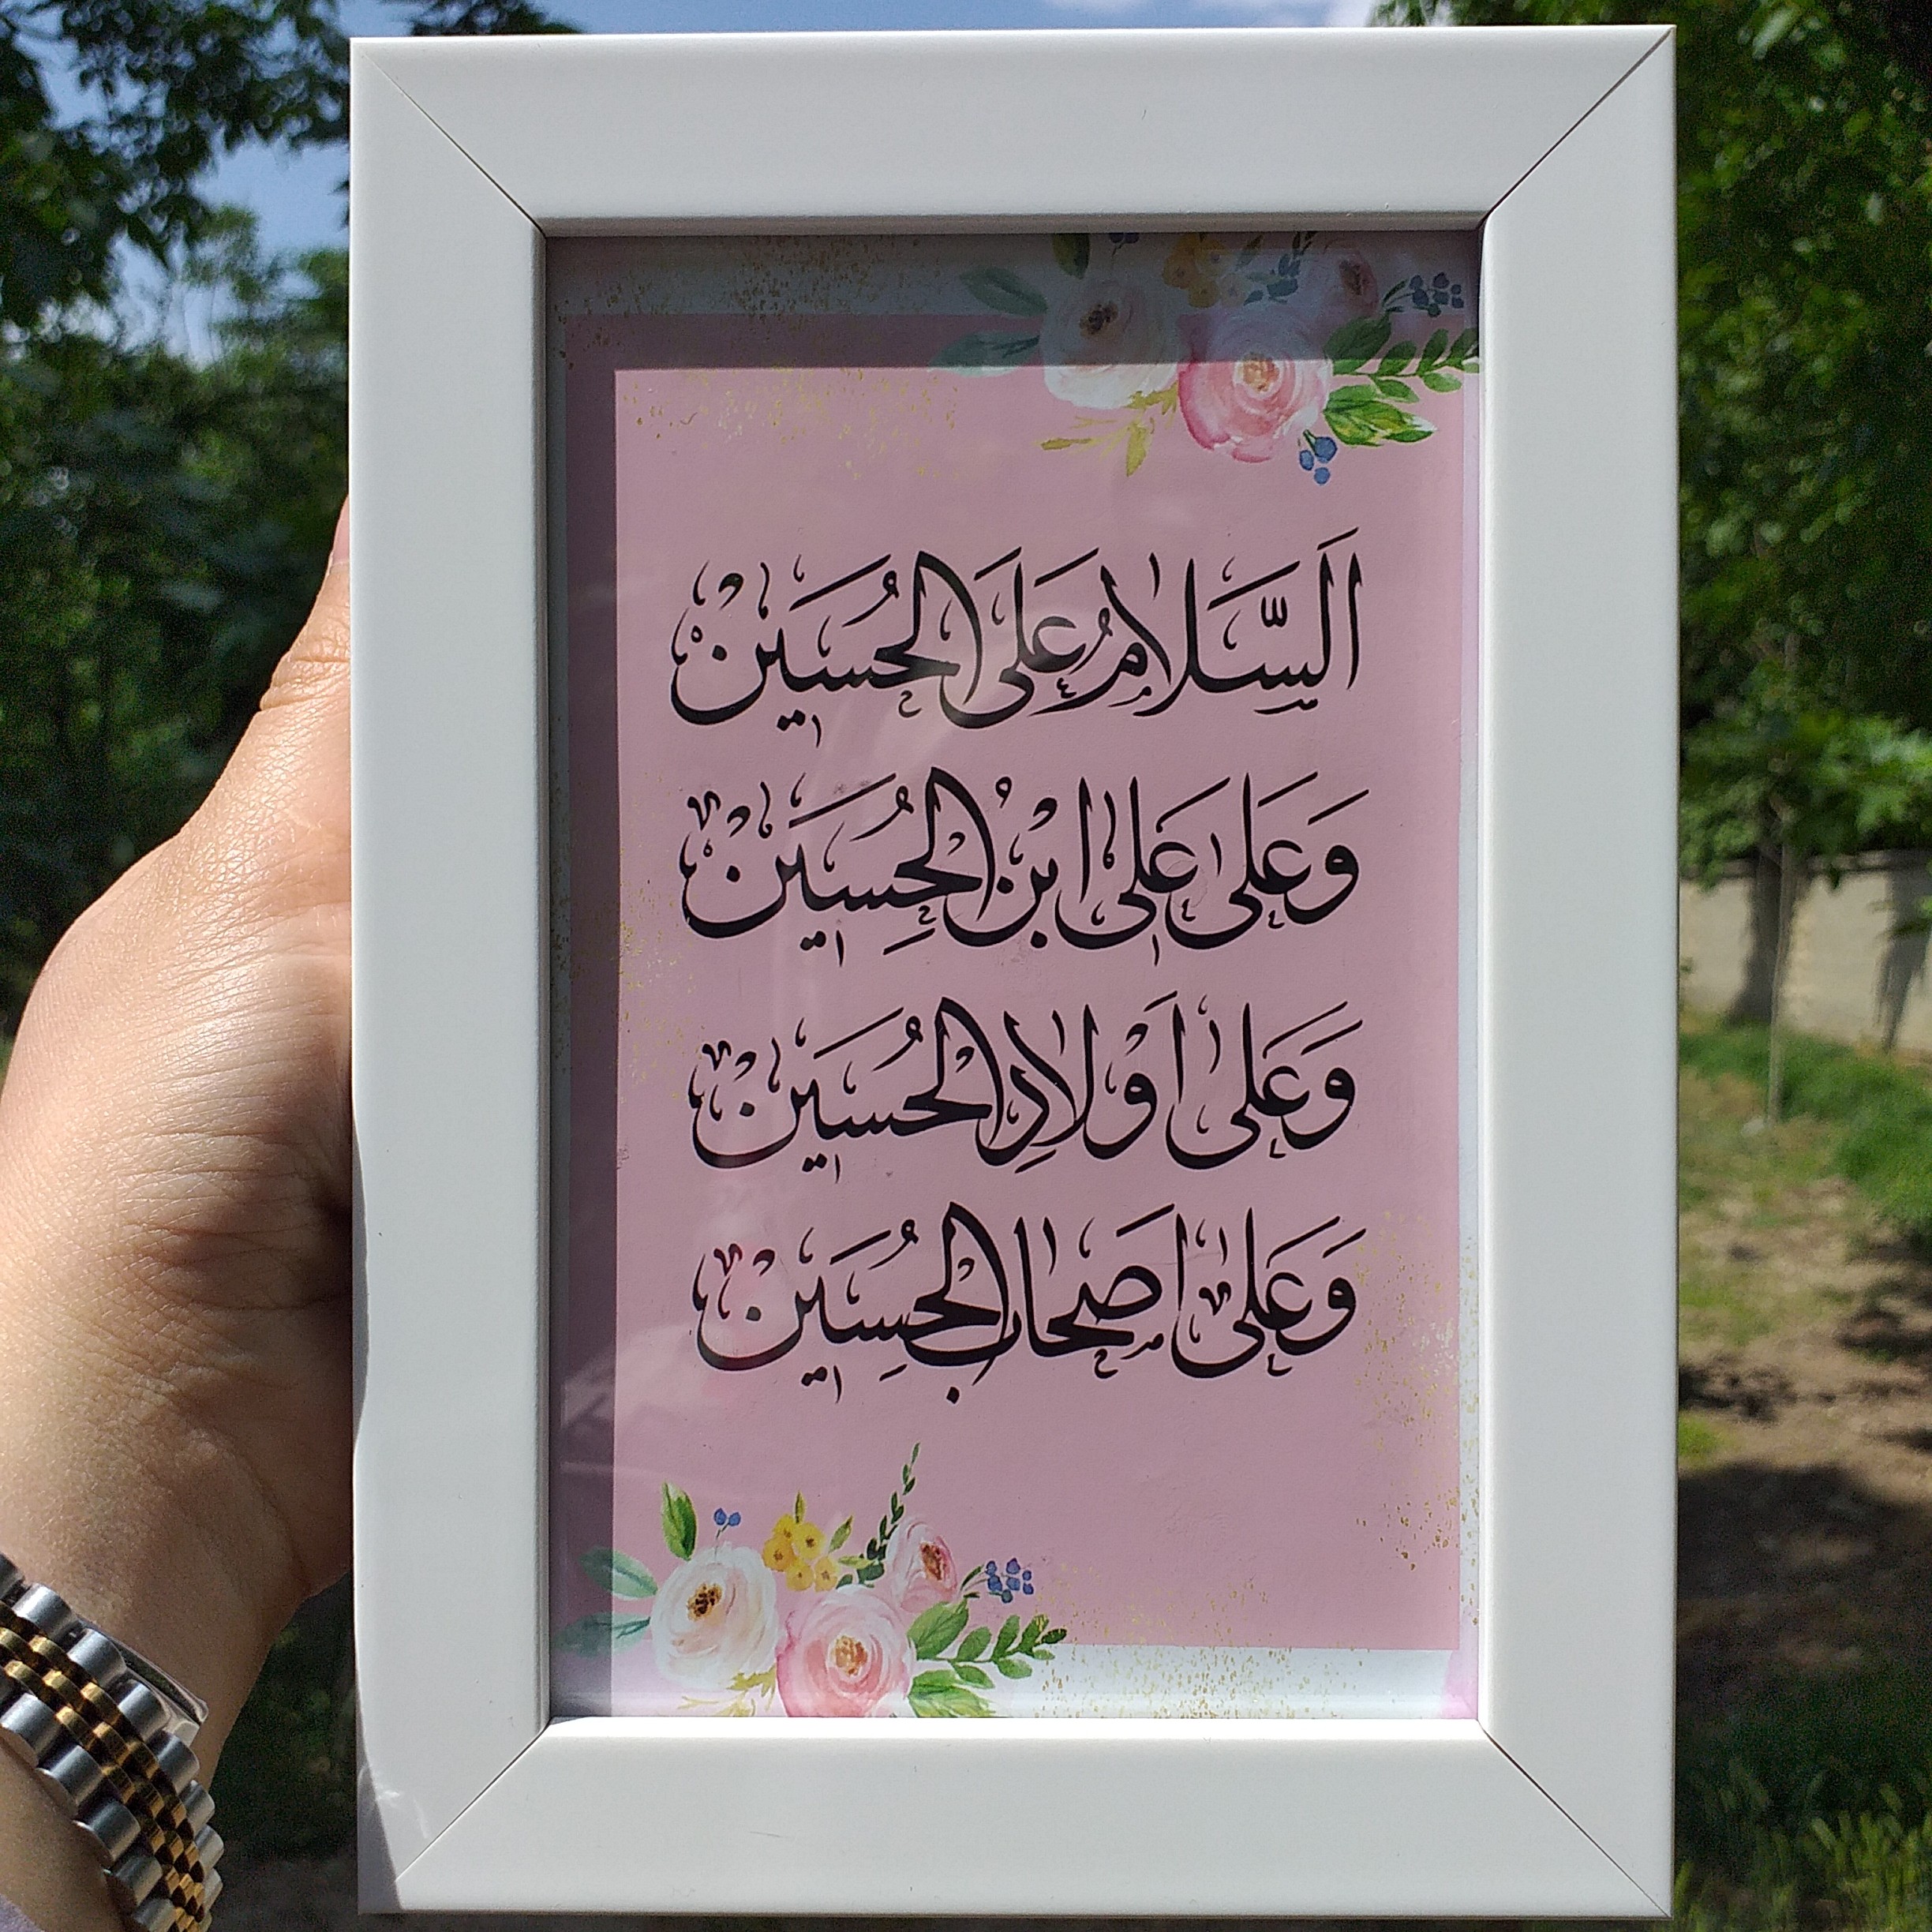 اَلسَّلامُ عَلَى الحُسَيْنْ
وَعَلى عَلى ابْنْ الحُسَيْنْ
وَعَلى اَوْلادِ الحُسَيْنْ
وَعَلى اَصْحابِ الحُسَيْنْ